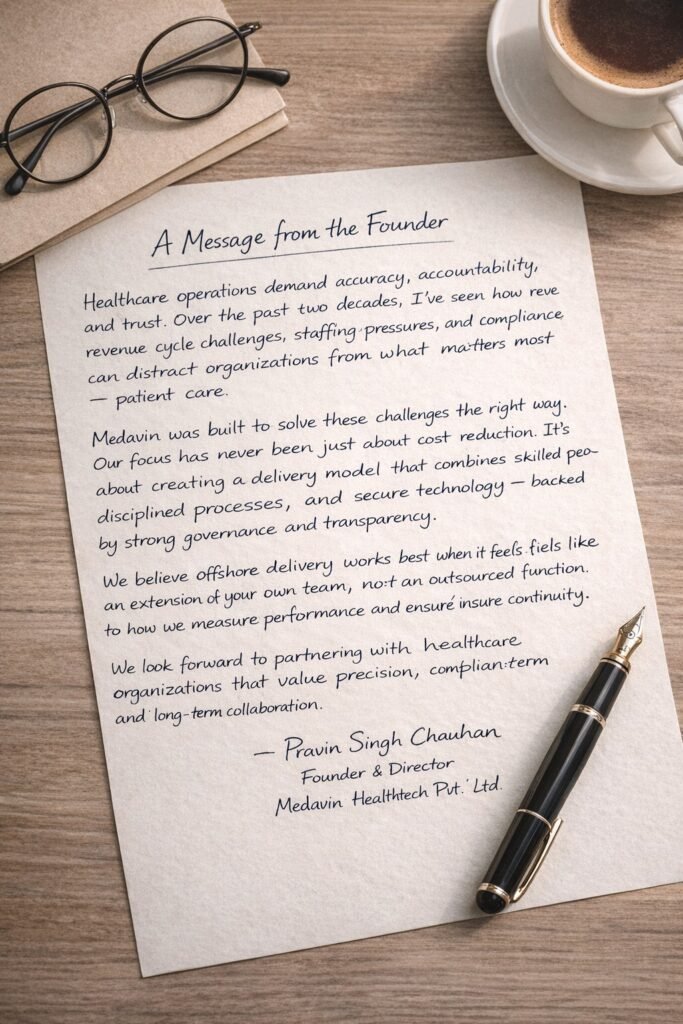 A Message from the Founder
Healthcare operations demand accuracy, accountability,
and trust. Over the past two decades, I've seen how reve
revenue cycle challenges, staffing pressures, and compliance
can distract organizations from what matters most
— patient care.
Medavin was built to solve these challenges the right way.
Our focus has never been just about cost reduction. It's
about creating a delivery model that combines skilled peo-
disciplined processes, and secure technology — backed
by strong governance and transparency.
We believe offshore delivery works best when it feels fiels like
an extension of your own team, not an outsourced function.
to how we measure performance and ensure insure continuity.
We look forward to partnering with healthcare
organizations that value precision, complian:term
and long-term collaboration.
— Pravin Singh Chauhan
Founder & Director
Medavin Healthtech Pvt. Ltd.